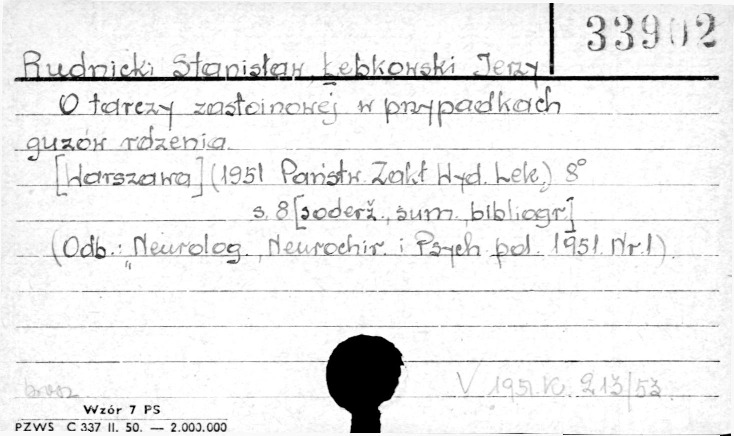 33902
Rudnicki Stanisław, Łebkowski Jerzy
O tarczy zastoinowej w przypadkach
guzów rdzenia.
[Warszawa] (1951 Państw. Zakł. Wyd. Lek.) 8°
s. 8 [soderž., sum., bibliogr.]
(Odb.: "Neurolog., Neurochir. i Psych. pol. 1951. Nr. 1).
brosz
V 1951.K. 213/53.
Wzór 7 PS
PZWS C 337 II. 50. — 2.000.000